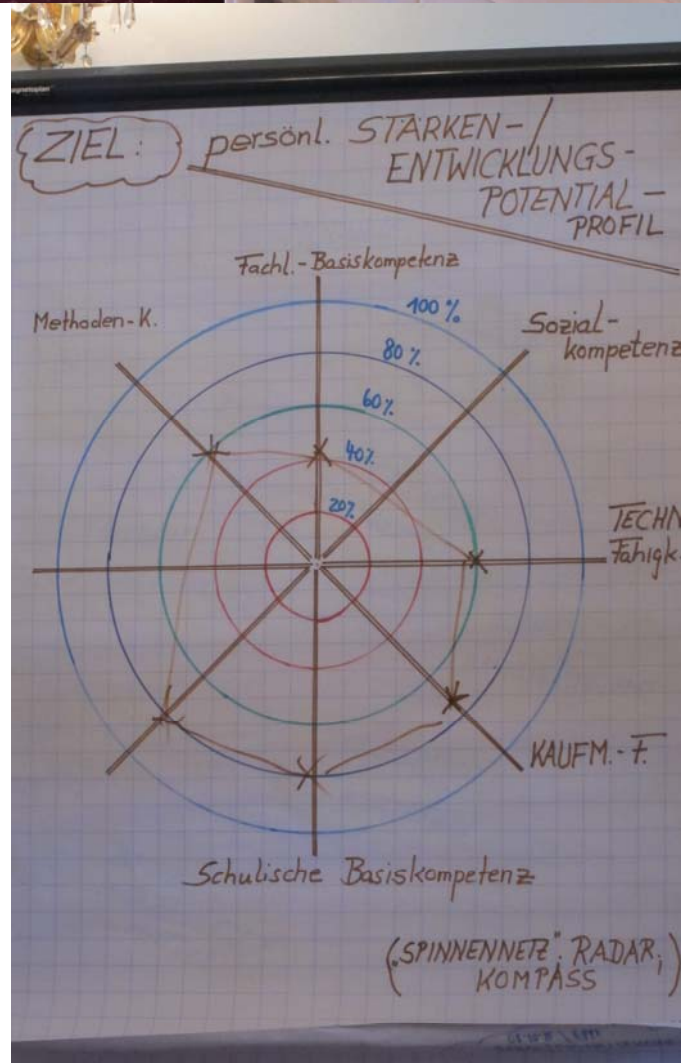 ZIEL:
persönl. STÄRKEN-/
ENTWICKLUNGS-
POTENTIAL-
PROFIL
Fachl.-Basiskompetenz
Methoden-K.
Sozial-
kompetenz
100%
80%
60%
40%
20%
TECHN
Fähigk.
KAUFM.-F.
Schulische Basiskompetenz
("SPINNENNETZ", RADAR,
KOMPASS)